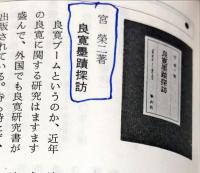 宮 榮二著
良寛墨蹟探訪
良寛ブームというのか、近年
の良寛に関する研究はますます
盛んで、外国でも良寛研究書が
出版されている。
良寛墨蹟探訪